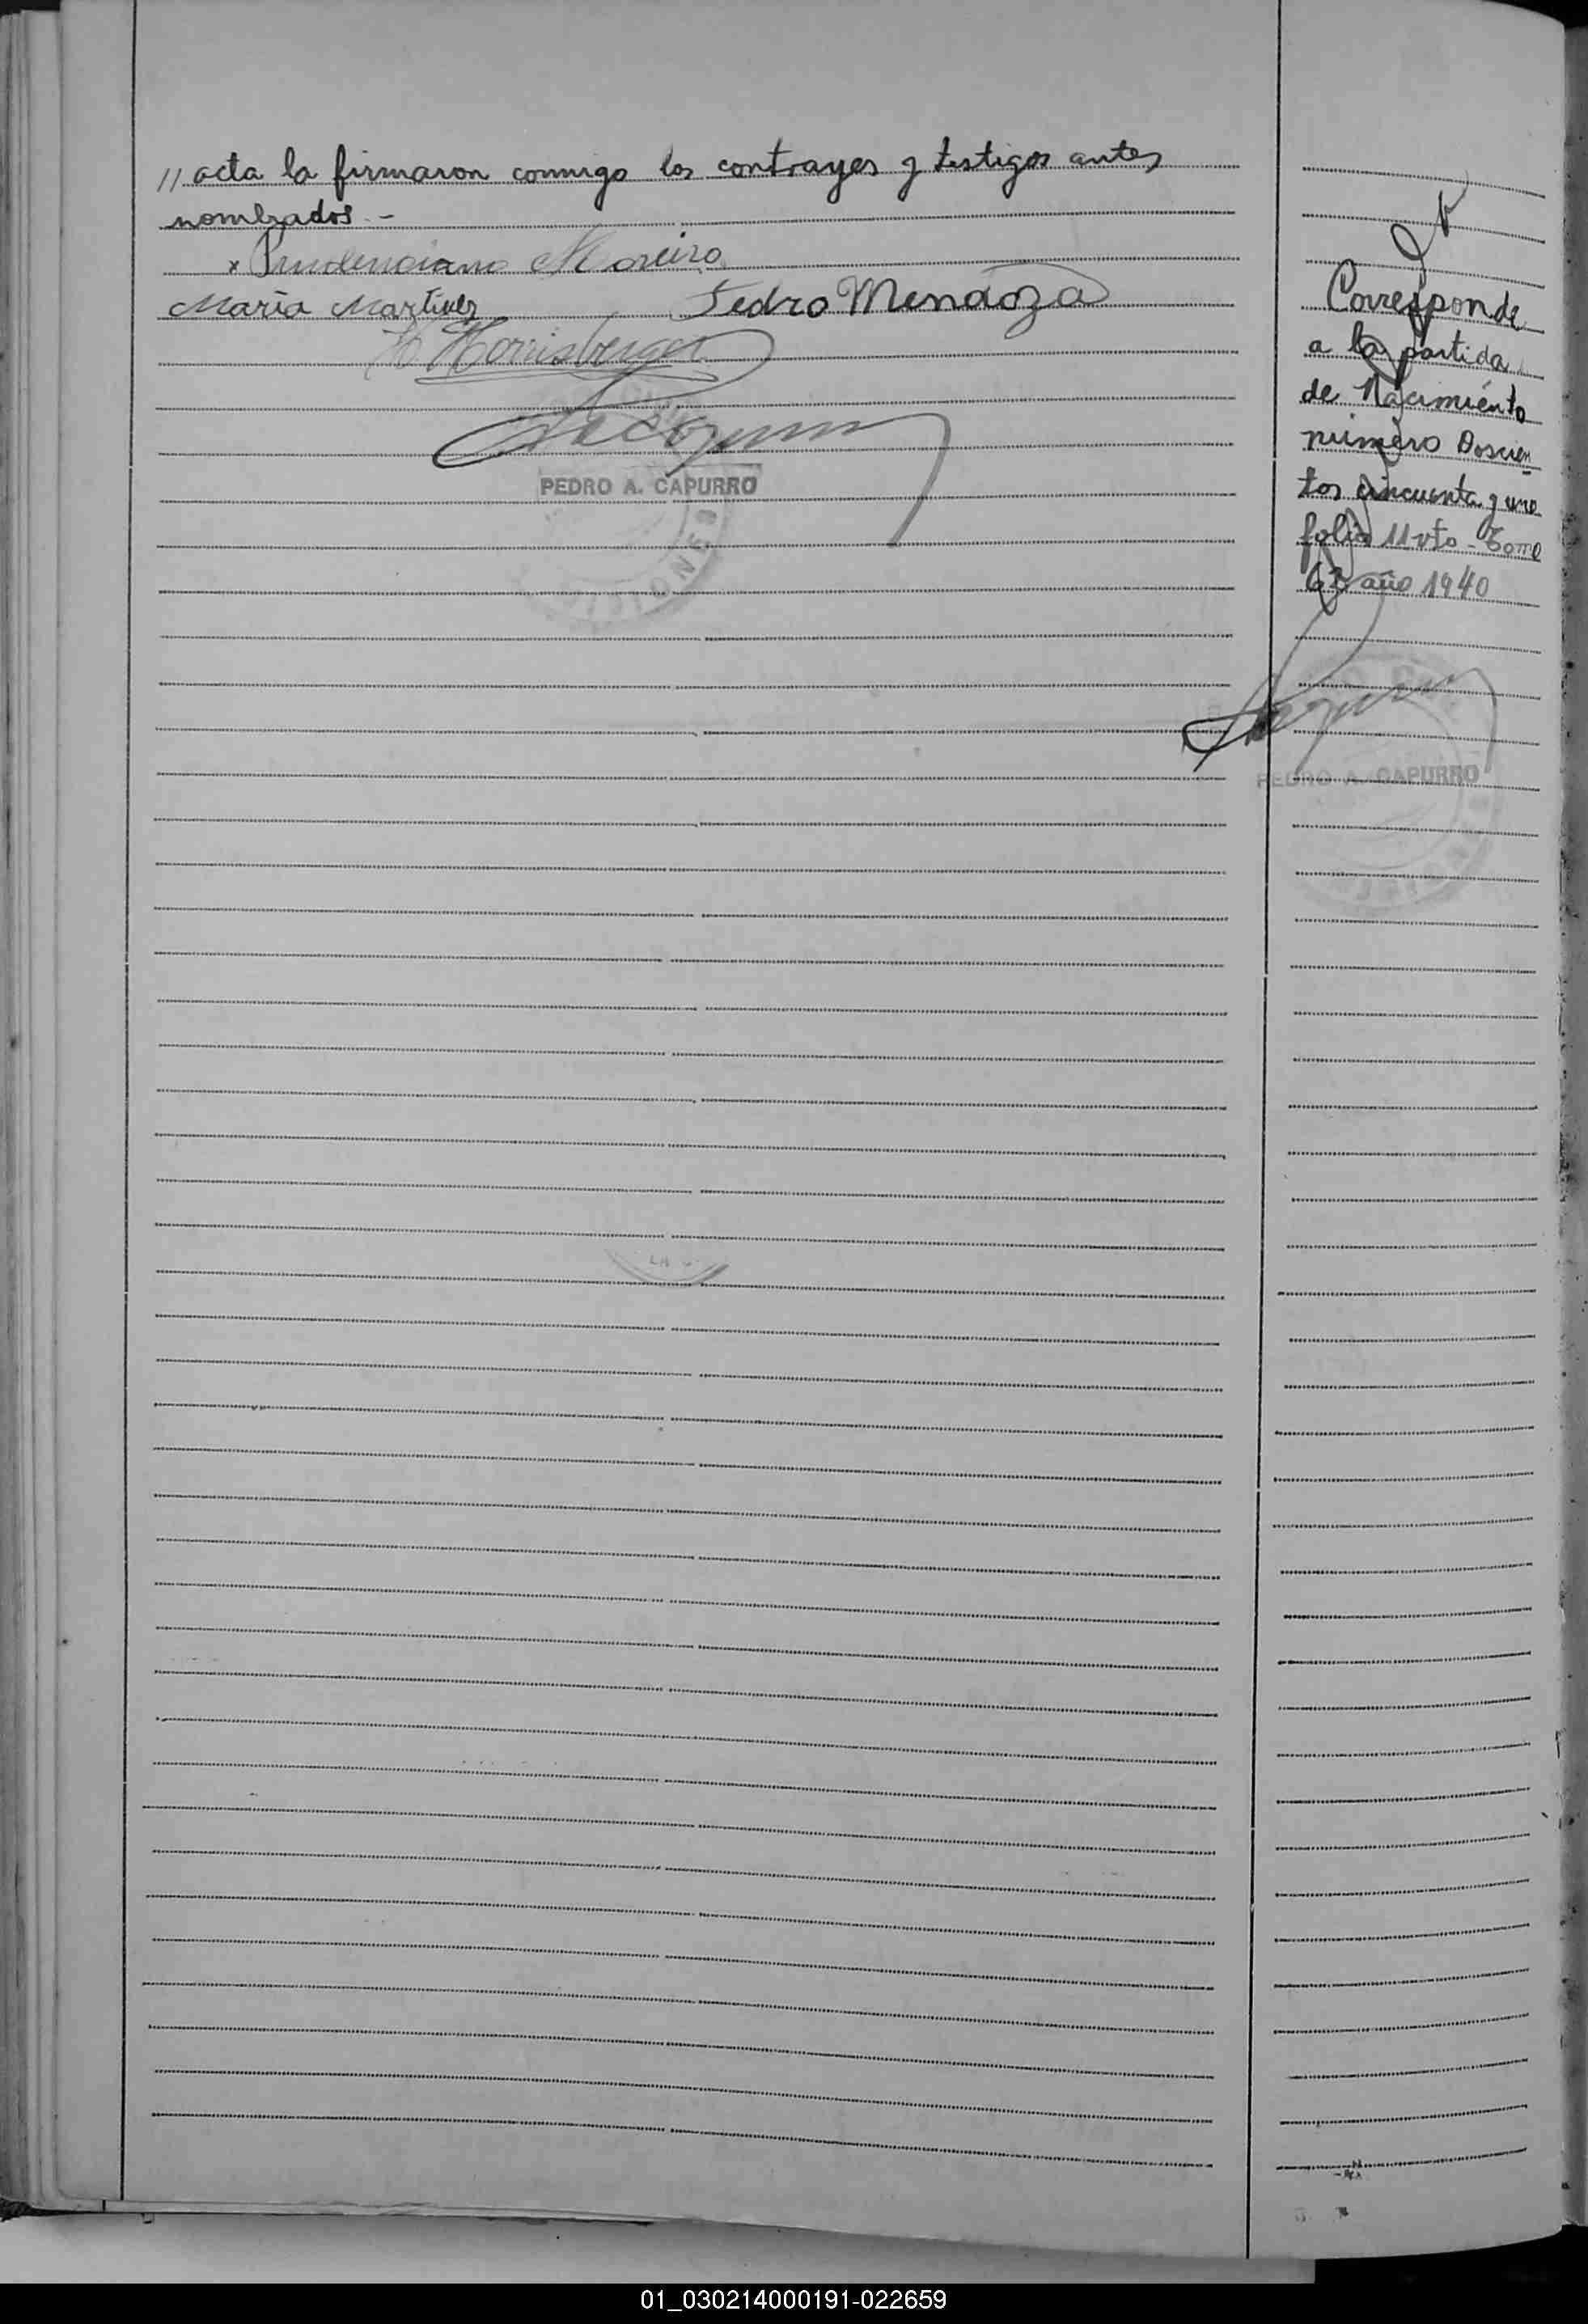 // acta la firmaron conmigo los contrayes y testigos antes
nombrados. -
x Prudenciano Moreira
María Martinez Pedro Mendoza
PEDRO A. CAPURRO
Corresponde
a la partida
de Nacimiénto
número Doscien
tos cincuenta y uno
folio 11 vto - Tomo
63 año 1940
PEDRO A. CAPURRO
01_030214000191-022659